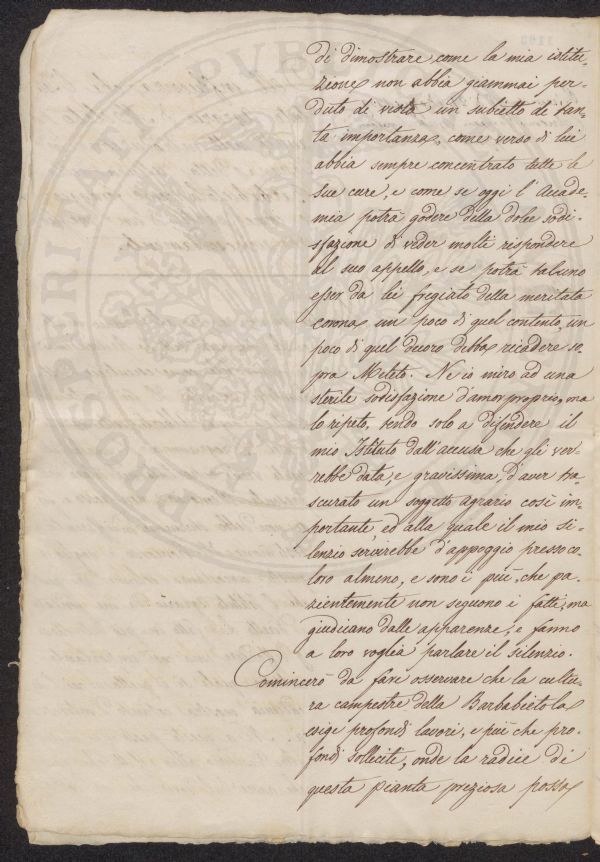 di dimostrare, come la mia istitu-
zione non abbia giammai per-
duto di vista un subietto di tan-
ta importanza, come verso di lei
abbia sempre concentrato tutte le
sue cure, e come se oggi l'Accade-
mia potrà godere della dolce sodi-
sfazione di veder molti rispondere
al suo appello, e se potrà taluno
esser da lei fregiato della meritata
corona un poco di quel contento, un
poco di quel decoro debba ricadere so-
pra Meleto. Ne io miro ad una
sterile sodisfazione d'amor proprio, ma
lo ripeto, tendo solo a difendere il
mio Istituto dall'accusa che gli ver-
rebbe data, e gravissima, d'aver tra-
scurato un soggetto agrario così im-
portante, ed alla quale il mio si-
lenzio servirebbe d'appoggio presso co-
loro almeno, e sono i più, che pa-
zientemente non seguono i fatti, ma
giudicano dalle apparenze, e fanno
a loro voglia parlare il silenzio.
Comincerò da fare osservare che la cultu-
ra campestre della Barbabietola
esige profondi lavori, e più che pro-
fondi solleciti, onde la radice di
questa pianta preziosa possa
PROSPERITA
PVBBL